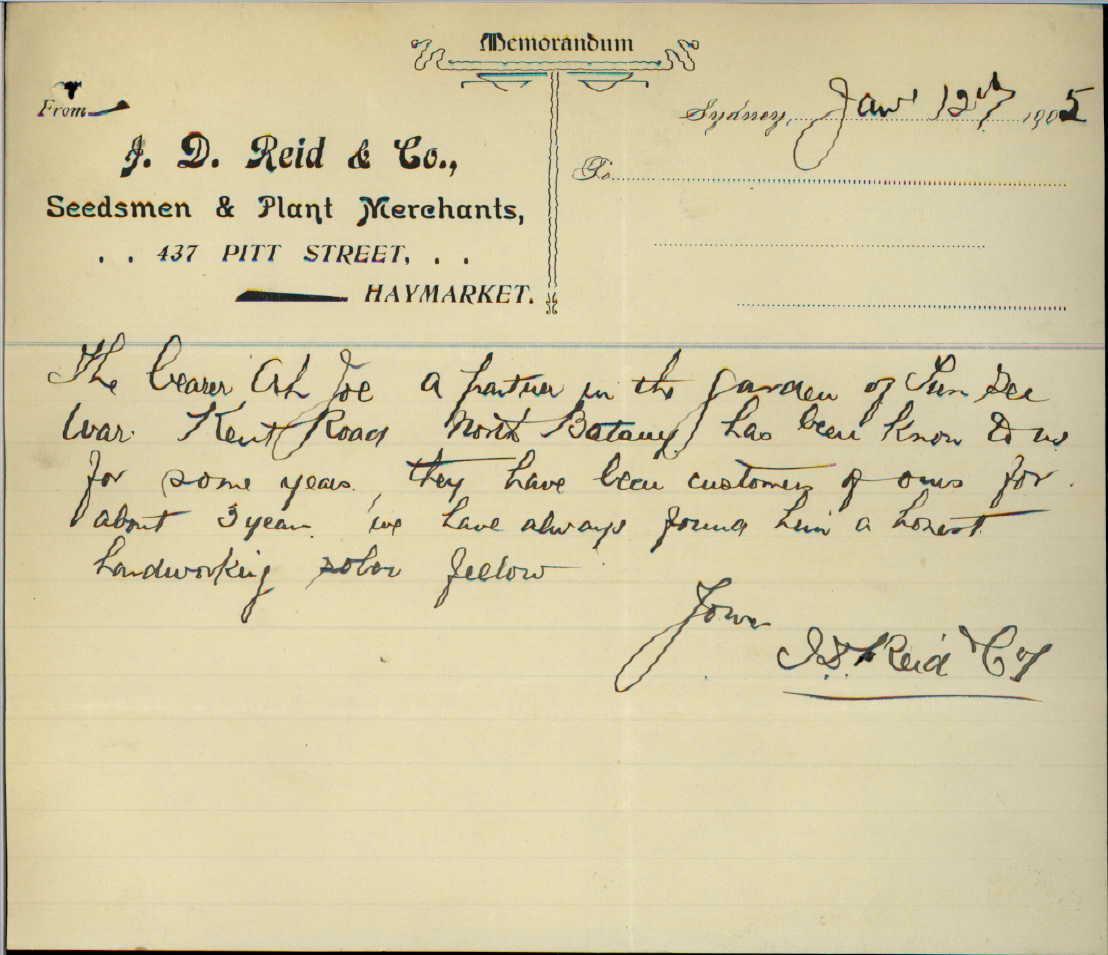 Memorandum
From
J. D. Reid & Co.,
Seedsmen & Plant Merchants,
. . 437 PITT STREET, . .
HAYMARKET.
Sydney, Jan 12th 1905
To
The bearer Ah Joe a partner in the garden of Sun
War Kent Road North Botany has been know to us
for some years, they have been customers of ours for
about 3 year we have always found him a honest
hardworking sober fellow
Yours
J. D. Reid & Coy